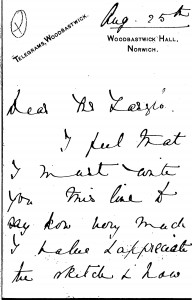 Aug. 25th
TELEGRAMS, WOODBASTWICK.
WOODBASTWICK HALL,
NORWICH.
Dear Mr
I feel that
I must write
you this line to
say how very much
I value & appreciate
the sketch & how